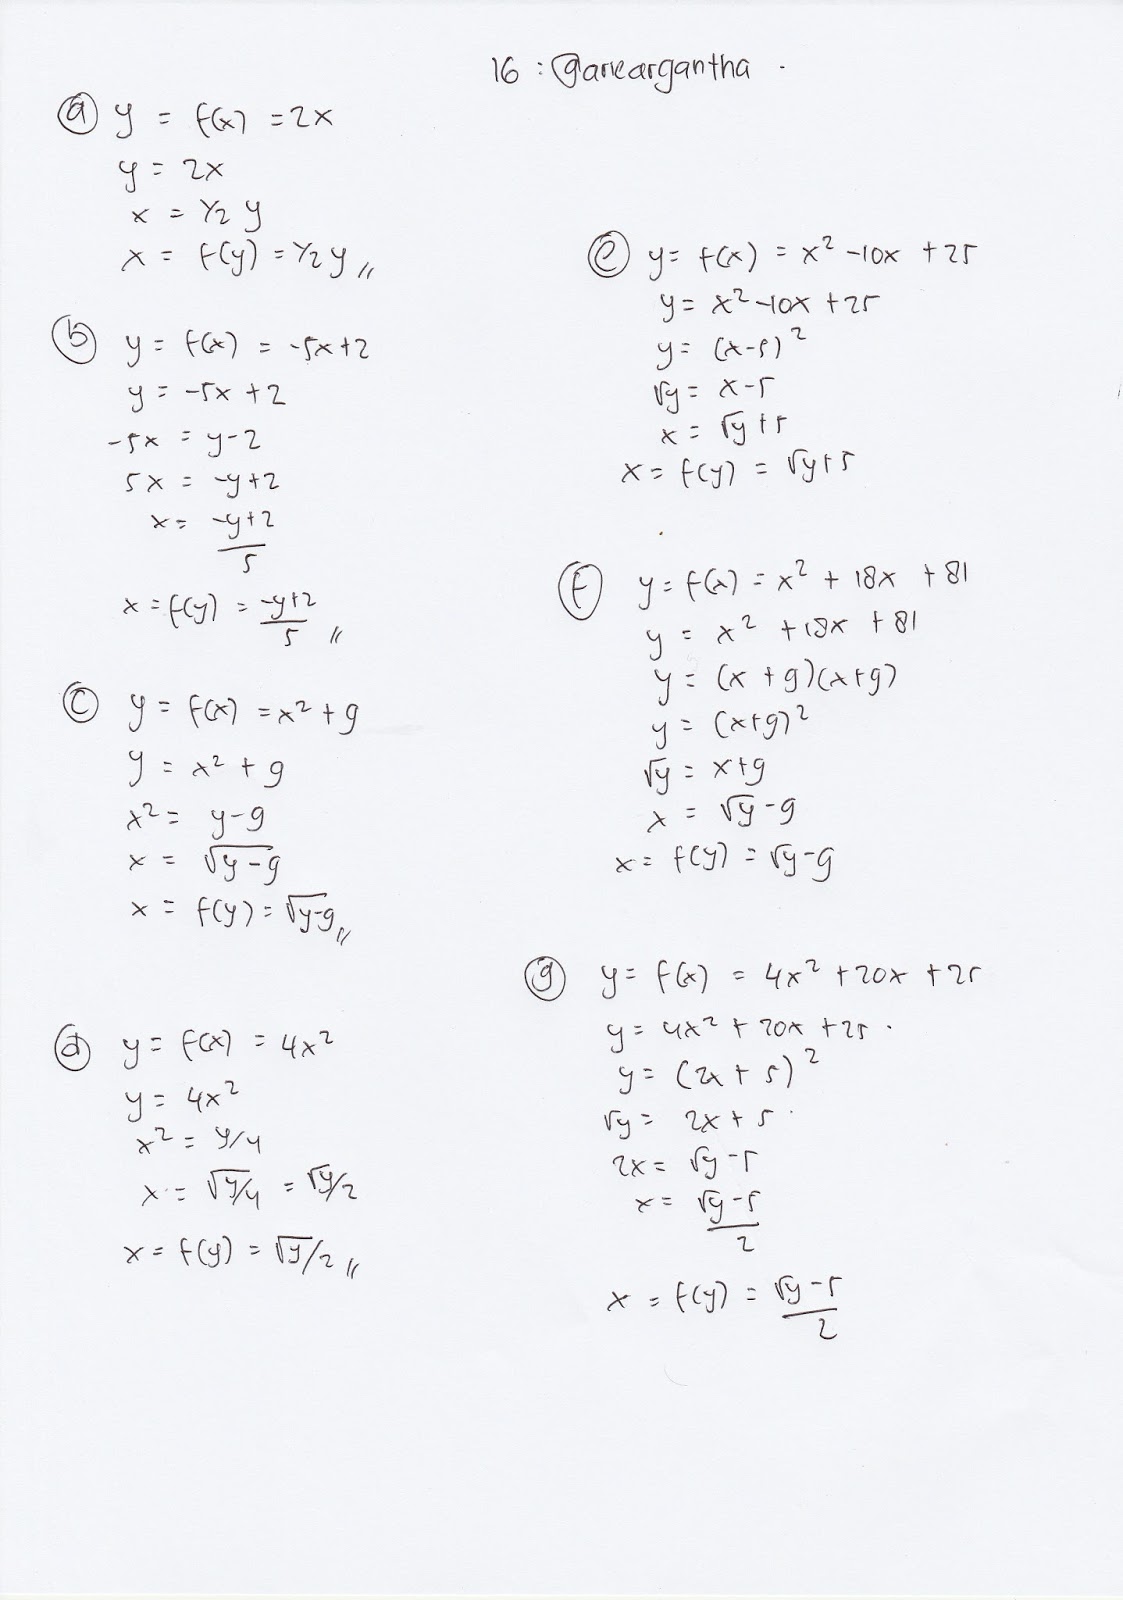 16 : @ariecargantha .
ⓐ y = f(x) = 2x
y = 2x
x = 1/2 y
x = f(y) = 1/2 y //
ⓑ y = f(x) = -5x+2
y = -5x +2
-5x = y-2
5x = -y+2
x = -y+2 / 5
x = f(y) = -y+2 / 5 //
ⓒ y = f(x) = x² + 9
y = x² + 9
x² = y-9
x = √(y-9)
x = f(y) = √(y-9) //
ⓓ y = f(x) = 4x²
y = 4x²
x² = y/4
x = √(y/4) = √y/2
x = f(y) = √y/2 //
ⓔ y = f(x) = x² -10x +25
y = x² -10x +25
y = (x-5)²
√y = x-5
x = √y +5
x = f(y) = √y+5
ⓕ y = f(x) = x² + 18x +81
y = x² +18x +81
y = (x +9)(x+9)
y = (x+9)²
√y = x+9
x = √y -9
x = f(y) = √y-9
ⓖ y = f(x) = 4x² +20x +25
y = 4x² + 20x +25 .
y = (2x + 5)²
√y = 2x + 5 .
2x = √y -5
x = √y -5 / 2
x = f(y) = √y -5 / 2